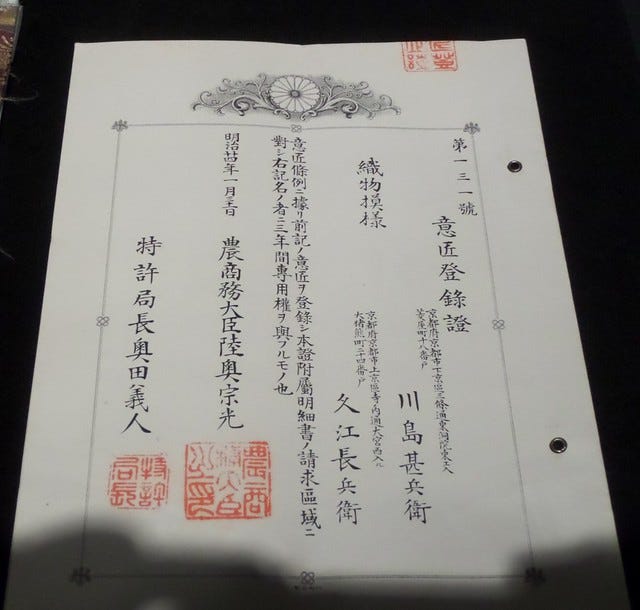 第一三一號
意匠登錄證
京都府京都市下京區三條通東洞院東エ入
菱屋町十八番戸
川島甚兵衛
京都府京都市上京區寺ノ内通大宮西入ル
久江長兵衛
織物模様
意匠條例ニ據リ前記ノ意匠ヲ登錄シ本證附屬明細書ノ請求區域ニ
對シ右記名ノ者ニ三年間專用權ヲ與フルモノ也
明治廿四年一月
農商務大臣陸奥宗光
農商務大臣之印
特許局長奥田義人
特許局長